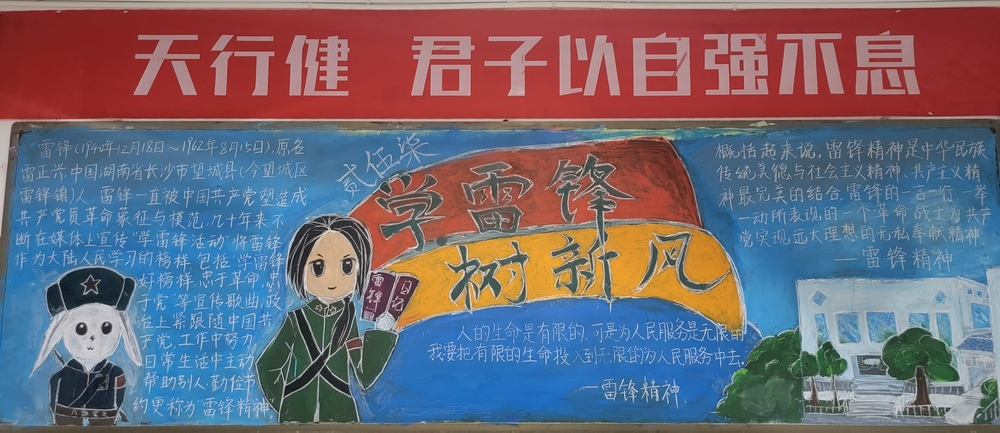 天行健 君子以自强不息
雷锋(1940年12月18日～1962年8月15日),原名
雷正兴,中国湖南省长沙市望城县(今望城区
雷锋镇)人,雷锋一直被中国共产党塑造成
共产党员革命象征与模范,几十年来不
断在媒体上宣传"学雷锋活动"将雷锋
作为大陆人民学习的榜样,包括"学雷锋
好榜样,忠于革命,忠
于党"等宣传歌曲,政
治上紧跟随中国共
产党,工作中努力,
日常生活中主动
帮助别人,勤俭节
约更称为"雷锋精神"
贰伍柒
学雷锋
树新风
雷锋
日记
人的生命是有限的,可是为人民服务是无限的,
我要把有限的生命投入到无限的为人民服务中去。
—雷锋精神
概括起来说,雷锋精神是中华民族
传统美德与社会主义精神、共产主义精
神最完美的结合,雷锋的一言一行一举
一动所表现的一个革命战士为共产
党实现远大理想的无私奉献精神
—雷锋精神